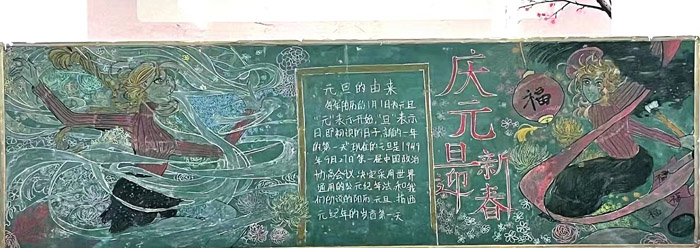 元旦的由来
每年阳历的1月1日为元旦
"元"表示开始,"旦"表示
日,即初的日子,新的一年
的第一天.现在的元旦是1949
年9月27日第一届中国政治
协商会议,决定采用世界
通用的公元纪年法,和我
们所说的阳历元旦,指西
元纪年的岁首第一天
庆元旦迎
新春
福
福